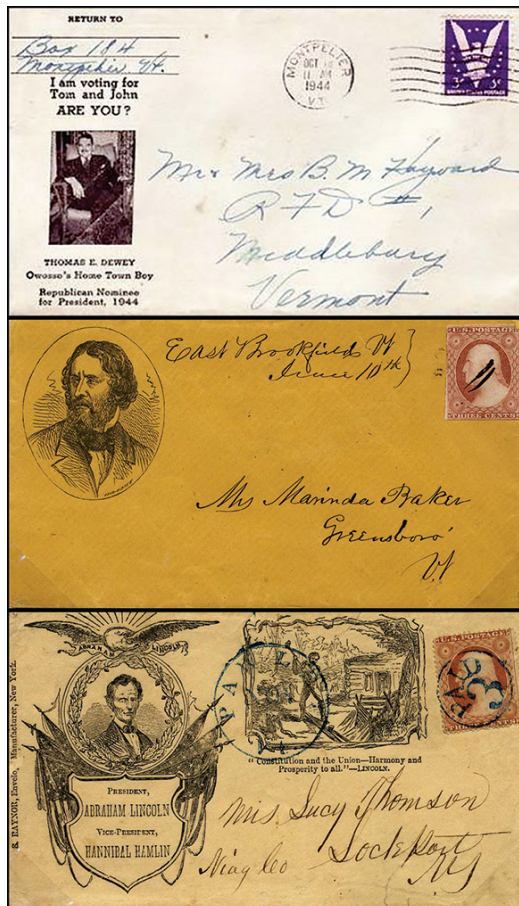 RETURN TO
Box 184
Montpelier, Vt.
I am voting for
Tom and John
ARE YOU?
THOMAS E. DEWEY
Owosso's Home Town Boy
Republican Nominee
for President, 1944
MONTPELIER
OCT
11 AM
1944
VT.
3¢ 3¢
UNITED STATES POSTAGE
Mr & Mrs B. M. Hayward
R F D #1,
Middlebury
Vermont
East Brookfield Vt
June 10th
U.S. POSTAGE
THREE CENTS
Mrs Marinda Baker
Greensboro
Vt
S. RAYNOR, Envelo. Manufacturer, New York.
ABRAHAM LINCOLN
PRESIDENT,
ABRAHAM LINCOLN
VICE-PRESIDENT,
HANNIBAL HAMLIN
"Constitution and the Union—Harmony and
Prosperity to all."—LINCOLN.
U.S. POSTAGE
PAID
3
Mrs. Lucy Thomson
Lockport
Niag Co
NY